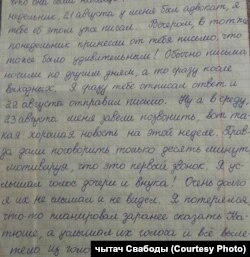 недельник, 21 августа у меня был адвокат, я
тебе об этом уже писал. Вечером, в тот же
понедельник принесли от тебя письмо, что
тоже было удивительным! Обычно письма
носили по другим дням, а то сразу после
выходных. Я сразу тебе отписал ответ и
22 августа отправил письмо. Ну а в среду
23 августа меня завели позвонить, вот та-
кая хорошая новость на этой неделе. Прав-
да дали поговорить только десять минут
мотивируя, что это первый звонок. Я ус-
лышал голос дочери и внука! Очень долго
я их не слышал и не видел. Я потерялся
что-то планировал заранее сказать На-
тюше, а услышал их голоса и всё выле-
тело из голо
чытач Свабоды (Courtesy Photo)